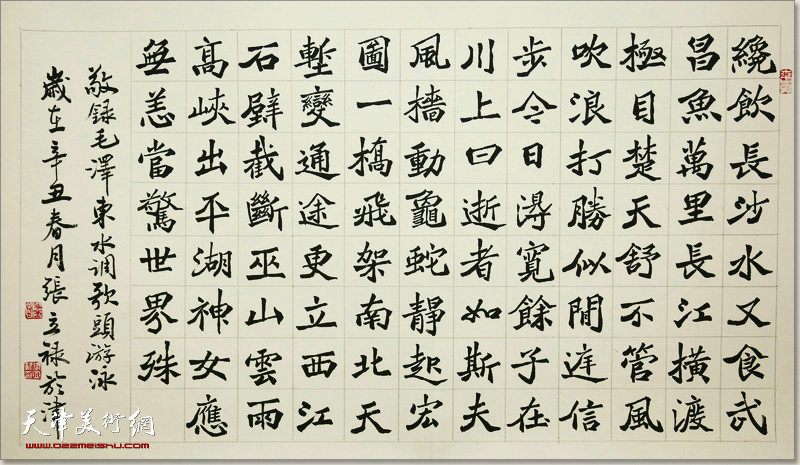 纔飲長沙水又食武
昌魚萬里長江橫渡
極目楚天舒不管風
吹浪打勝似閒庭信
步今日得寬餘子在
川上曰逝者如斯夫
風檣動龜蛇靜起宏
圖一橋飛架南北天
塹變通途更立西江
石壁截斷巫山雲雨
高峽出平湖神女應
無恙當驚世界殊
敬録毛澤東水调歌頭游泳
歲在辛丑春月張立禄於津
天津美術網
www.022meishu.com